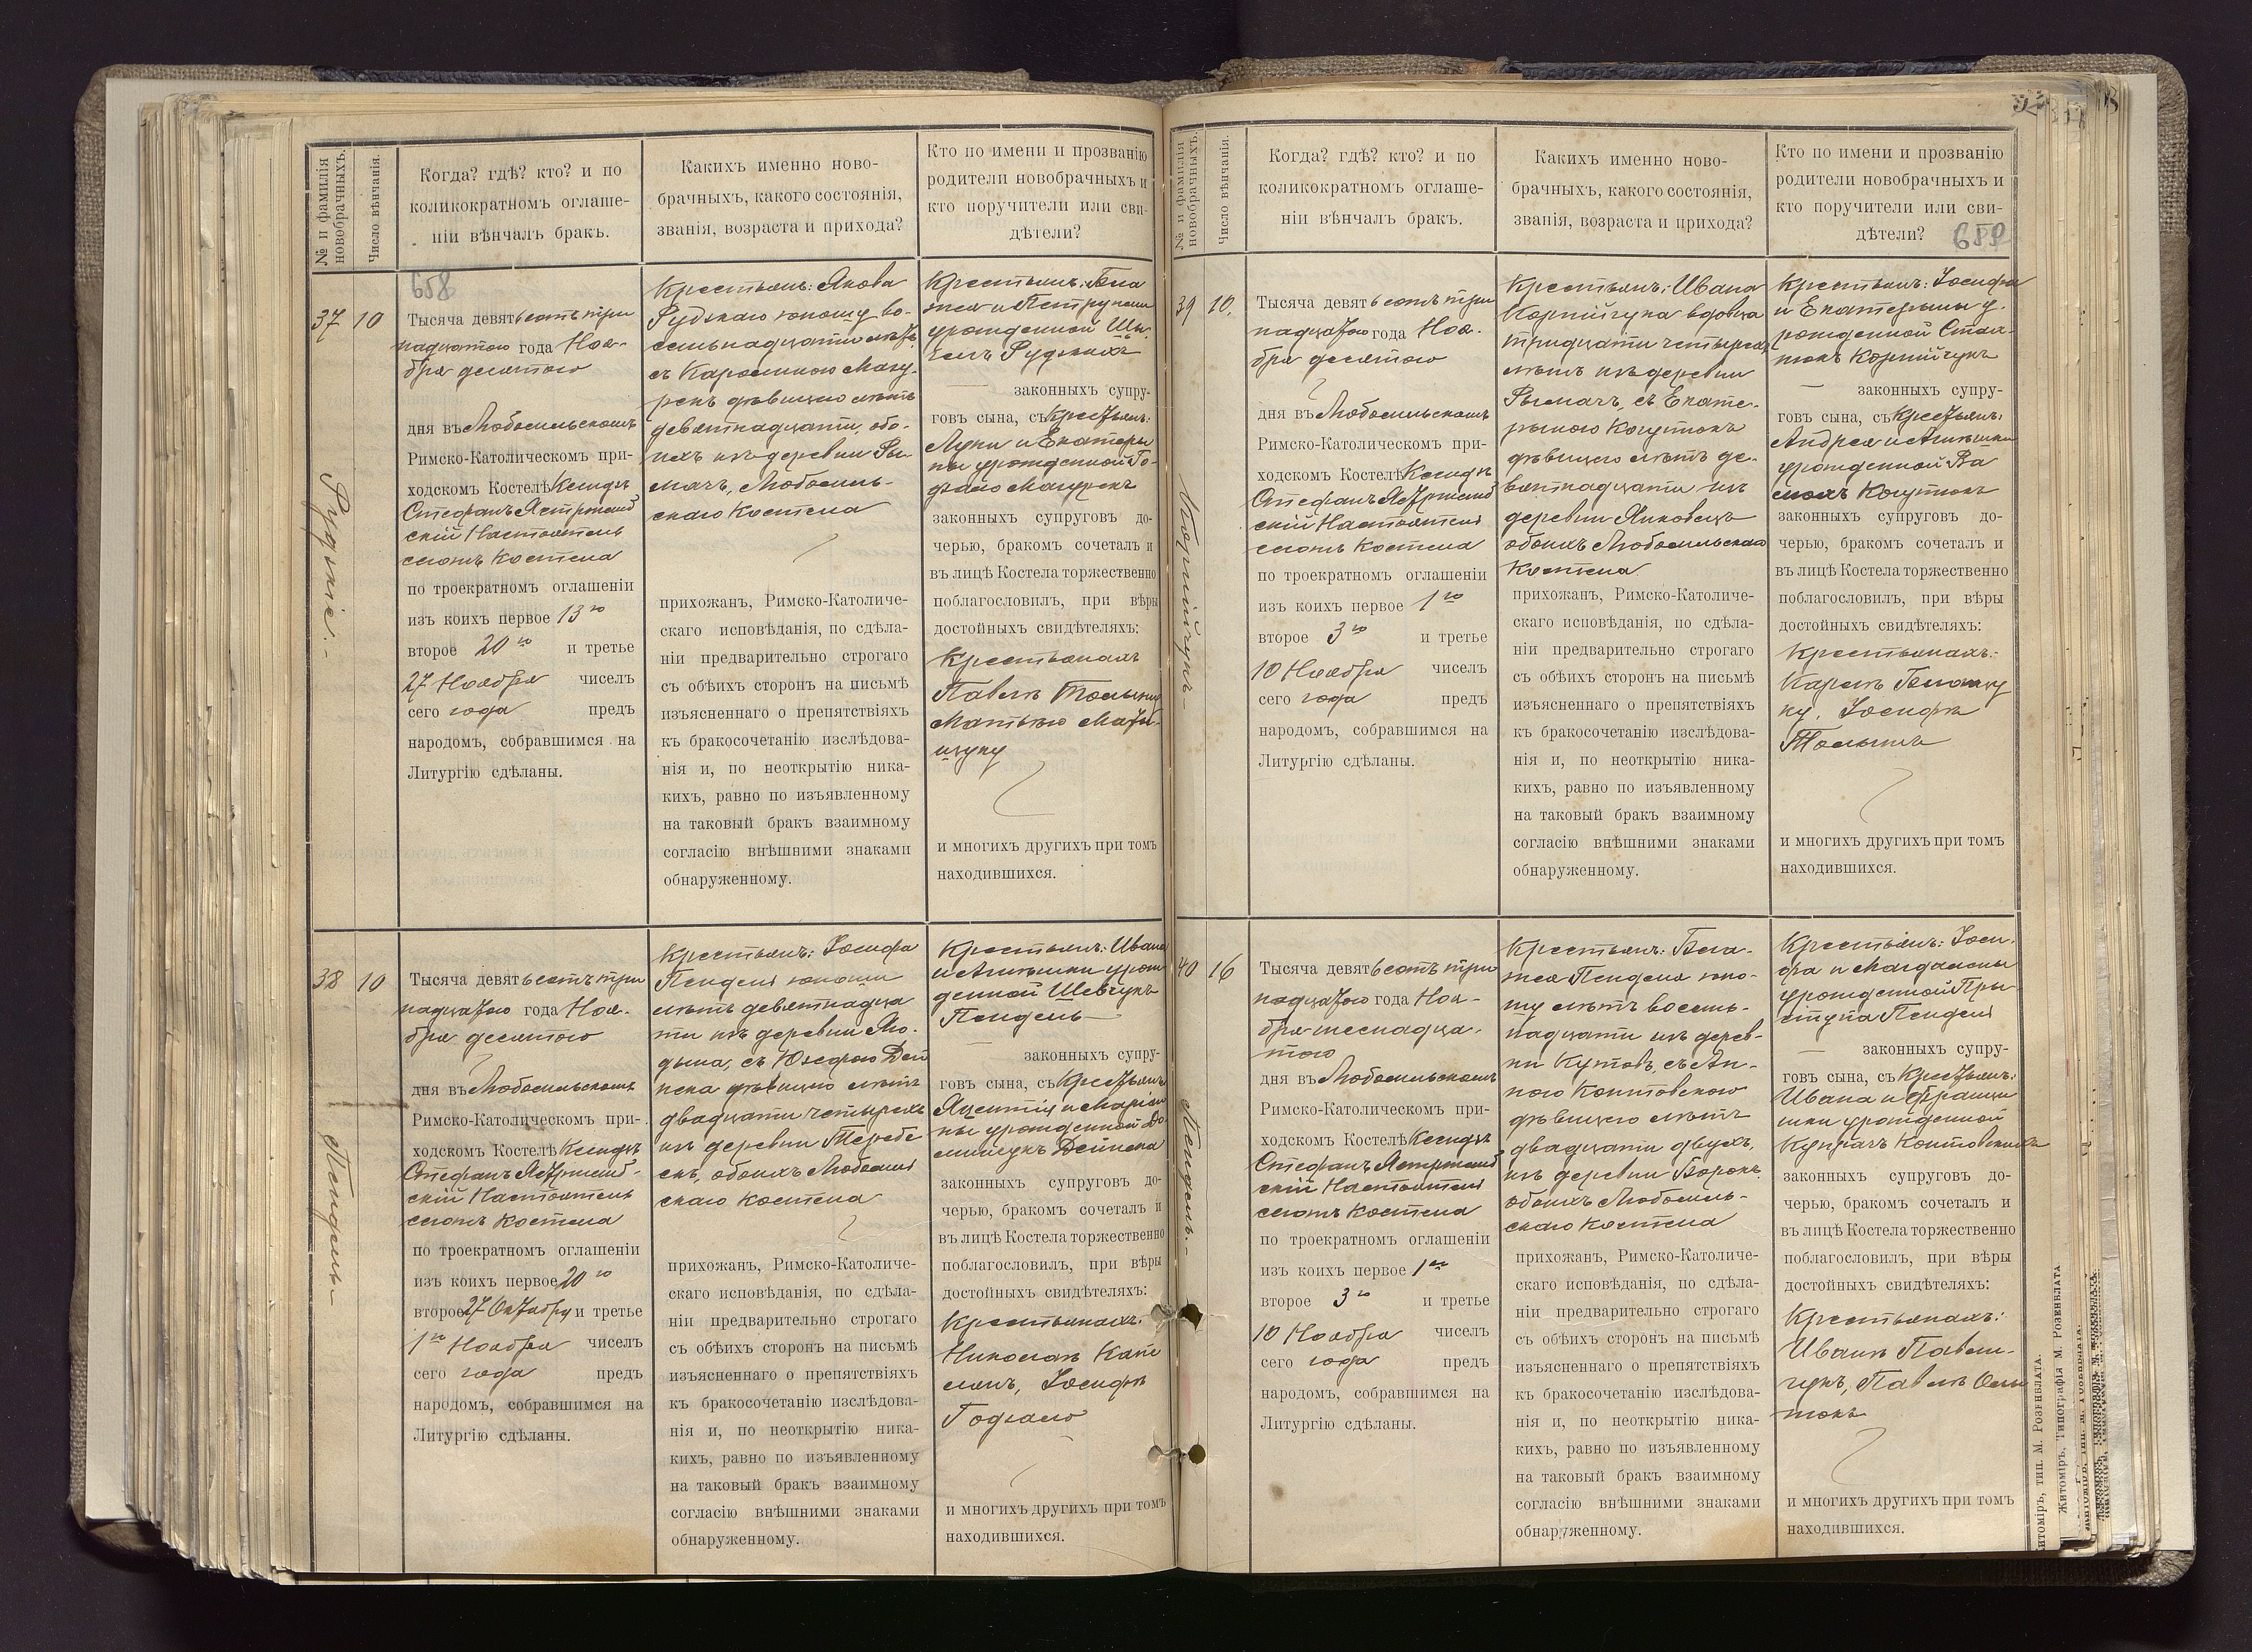 № и фамилія новобрачныхъ.
Число вѣнчанія.
Когда? гдѣ? кто? и по
коликократномъ оглаше-
ніи вѣнчалъ бракъ.
Какихъ именно ново-
брачныхъ, какого состоянія,
званія, возраста и прихода?
Кто по имени и прозванію
родители новобрачныхъ и
кто поручители или сви-
дѣтели?
658
37
10
Рудзкіе.-
Тысяча девятьсотъ три
надцатого года Ноя-
бря десятого
дня въ Любомльскомъ
Римско-Католическомъ при-
ходскомъ Костелѣ Ксендзъ
Стефанъ Ястржемб
скій Настоятель
сегоже Костела
по троекратномъ оглашеніи
изъ коихъ первое 13го
второе 20го и третье
27 Ноября чиселъ
сего года предъ
народомъ, собравшимся на
Литургію сдѣланы.
Крестьянъ: Якова
Рудзкаго юношу во-
семьнадцати лѣтъ
съ Каролиною Мазу-
рекъ дѣвицею лѣтъ
девятнадцати, обо-
ихъ изъ деревни Ры-
мачъ, Любомль-
скаго Костела
прихожанъ, Римско-Католиче-
скаго исповѣданія, по сдѣла-
ніи предварительно строгаго
съ обѣихъ сторонъ на письмѣ
изъясненнаго о препятствіяхъ
къ бракосочетанію изслѣдова-
нія и, по неоткрытію ника-
кихъ, равно по изъявленному
на таковый бракъ взаимному
согласію внѣшними знаками
обнаруженному.
Крестьянъ: Бла
жея и Петрунели
урожденной
Рудзкихъ
законныхъ супру-
говъ сына, съ Крестьянъ:
Луки и Екатери
ны урожденной Го-
дзьло Мазурекъ
законныхъ супруговъ до-
черью, бракомъ сочеталъ и
въ лицѣ Костела торжественно
поблагословилъ, при вѣры
достойныхъ свидѣтеляхъ:
Крестьянахъ
Павелъ
и многихъ другихъ при томъ
находившихся.
38
10
Пендель-
Тысяча девятьсотъ три
надцатого года Ноя-
бря десятого
дня въ Любомльскомъ
Римско-Католическомъ при-
ходскомъ Костелѣ Ксендзъ
Стефанъ Ястржемб-
скій Настоятель
сегоже Костела
по троекратномъ оглашеніи
изъ коихъ первое 20го
второе 27 Октября и третье
1го Ноября чиселъ
сего года предъ
народомъ, собравшимся на
Литургію сдѣланы.
Крестьянъ: Іосифа
Пенделя юноши
лѣтъ девятнадца
ти изъ деревни Яго-
дына, съ Юзефою Дей
нека дѣвицею лѣтъ
двадцати четырехъ
изъ деревни Теребе
скаго Костела
прихожанъ, Римско-Католиче-
скаго исповѣданія, по сдѣла-
ніи предварительно строгаго
съ обѣихъ сторонъ на письмѣ
изъясненнаго о препятствіяхъ
къ бракосочетанію изслѣдова-
нія и, по неоткрытію ника-
кихъ, равно по изъявленному
на таковый бракъ взаимному
согласію внѣшними знаками
обнаруженному.
Крестьянъ: Ивана
и Агнѣшки урож
денной Шевчукъ
Пендель
законныхъ супру-
говъ сына, съ Крестьянъ
Яцентія и Маріан
ны урожденной
Дейнека
законныхъ супруговъ до-
черью, бракомъ сочеталъ и
въ лицѣ Костела торжественно
поблагословилъ, при вѣры
достойныхъ свидѣтеляхъ:
Крестьянахъ:
Николай
Іосифъ
Годзьло
и многихъ другихъ при томъ
находившихся.
№ и фамилія новобрачныхъ.
Число вѣнчанія.
Когда? гдѣ? кто? и по
коликократномъ оглаше-
ніи вѣнчалъ бракъ.
Какихъ именно ново-
брачныхъ, какого состоянія,
званія, возраста и прихода?
Кто по имени и прозванію
родители новобрачныхъ и
кто поручители или сви-
дѣтели?
659
39
10.
Корнійчукъ-
Тысяча девятьсотъ три
надцатого года Ноя-
бря десятого
дня въ Любомльскомъ
Римско-Католическомъ при-
ходскомъ Костелѣ Ксендзъ
Стефанъ Ястржемб
скій Настоятель
сегоже Костела
по троекратномъ оглашеніи
изъ коихъ первое 1го
второе 3го и третье
10 Ноября чиселъ
сего года предъ
народомъ, собравшимся на
Литургію сдѣланы.
Крестьянъ: Ивана
Корнійчука вдовца
тридцати четырехъ
лѣтъ изъ деревни
Рымачъ, съ Екате-
риною Коцютокъ
дѣвицею лѣтъ де-
вятнадцати изъ
деревни Янковецъ
обоихъ Любомльскаго
Костела
прихожанъ, Римско-Католиче-
скаго исповѣданія, по сдѣла-
ніи предварительно строгаго
съ обѣихъ сторонъ на письмѣ
изъясненнаго о препятствіяхъ
къ бракосочетанію изслѣдова-
нія и, по неоткрытію ника-
кихъ, равно по изъявленному
на таковый бракъ взаимному
согласію внѣшними знаками
обнаруженному.
Крестьянъ: Іосифа
и Екатерины у-
рожденной
Корнійчукъ
законныхъ супру-
говъ сына, съ Крестьянъ:
Андрея и Агнѣшки
урожденной
Коцютокъ
законныхъ супруговъ до-
черью, бракомъ сочеталъ и
въ лицѣ Костела торжественно
поблагословилъ, при вѣры
достойныхъ свидѣтеляхъ:
Крестьянахъ:
Іосифъ
и многихъ другихъ при томъ
находившихся.
40
16
Пендель.-
Тысяча девятьсотъ три
надцатого года Ноя-
бря шеснадца-
того
дня въ Любомльскомъ
Римско-Католическомъ при-
ходскомъ Костелѣ Ксендзъ
Стефанъ Ястржемб
скій Настоятель
сегоже Костела
по троекратномъ оглашеніи
изъ коихъ первое 1го
второе 3го и третье
10 Ноября чиселъ
сего года предъ
народомъ, собравшимся на
Литургію сдѣланы.
Крестьянъ: Бла-
жея Пенделя юно-
шу лѣтъ восемь-
надцати изъ дерев-
ни Кутовъ, съ Ан-
ною Контовскою
дѣвицею лѣтъ
двадцати двухъ,
изъ деревни
обоихъ Любомль-
скаго Костела
прихожанъ, Римско-Католиче-
скаго исповѣданія, по сдѣла-
ніи предварительно строгаго
съ обѣихъ сторонъ на письмѣ
изъясненнаго о препятствіяхъ
къ бракосочетанію изслѣдова-
нія и, по неоткрытію ника-
кихъ, равно по изъявленному
на таковый бракъ взаимному
согласію внѣшними знаками
обнаруженному.
Крестьянъ: Іоси-
фа и Магдалены
урожденной При-
ступа Пенделя
законныхъ супру-
говъ сына, съ Крестьянъ:
Ивана и Францы
шки урожденной
Контовскихъ
законныхъ супруговъ до-
черью, бракомъ сочеталъ и
въ лицѣ Костела торжественно
поблагословилъ, при вѣры
достойныхъ свидѣтеляхъ:
Крестьянахъ:
Иванъ Павлю-
чукъ, Павелъ
и многихъ другихъ при томъ
находившихся.
итоміръ, тип. М. Розенблата.
Житоміръ, Типографія М. Розенблата